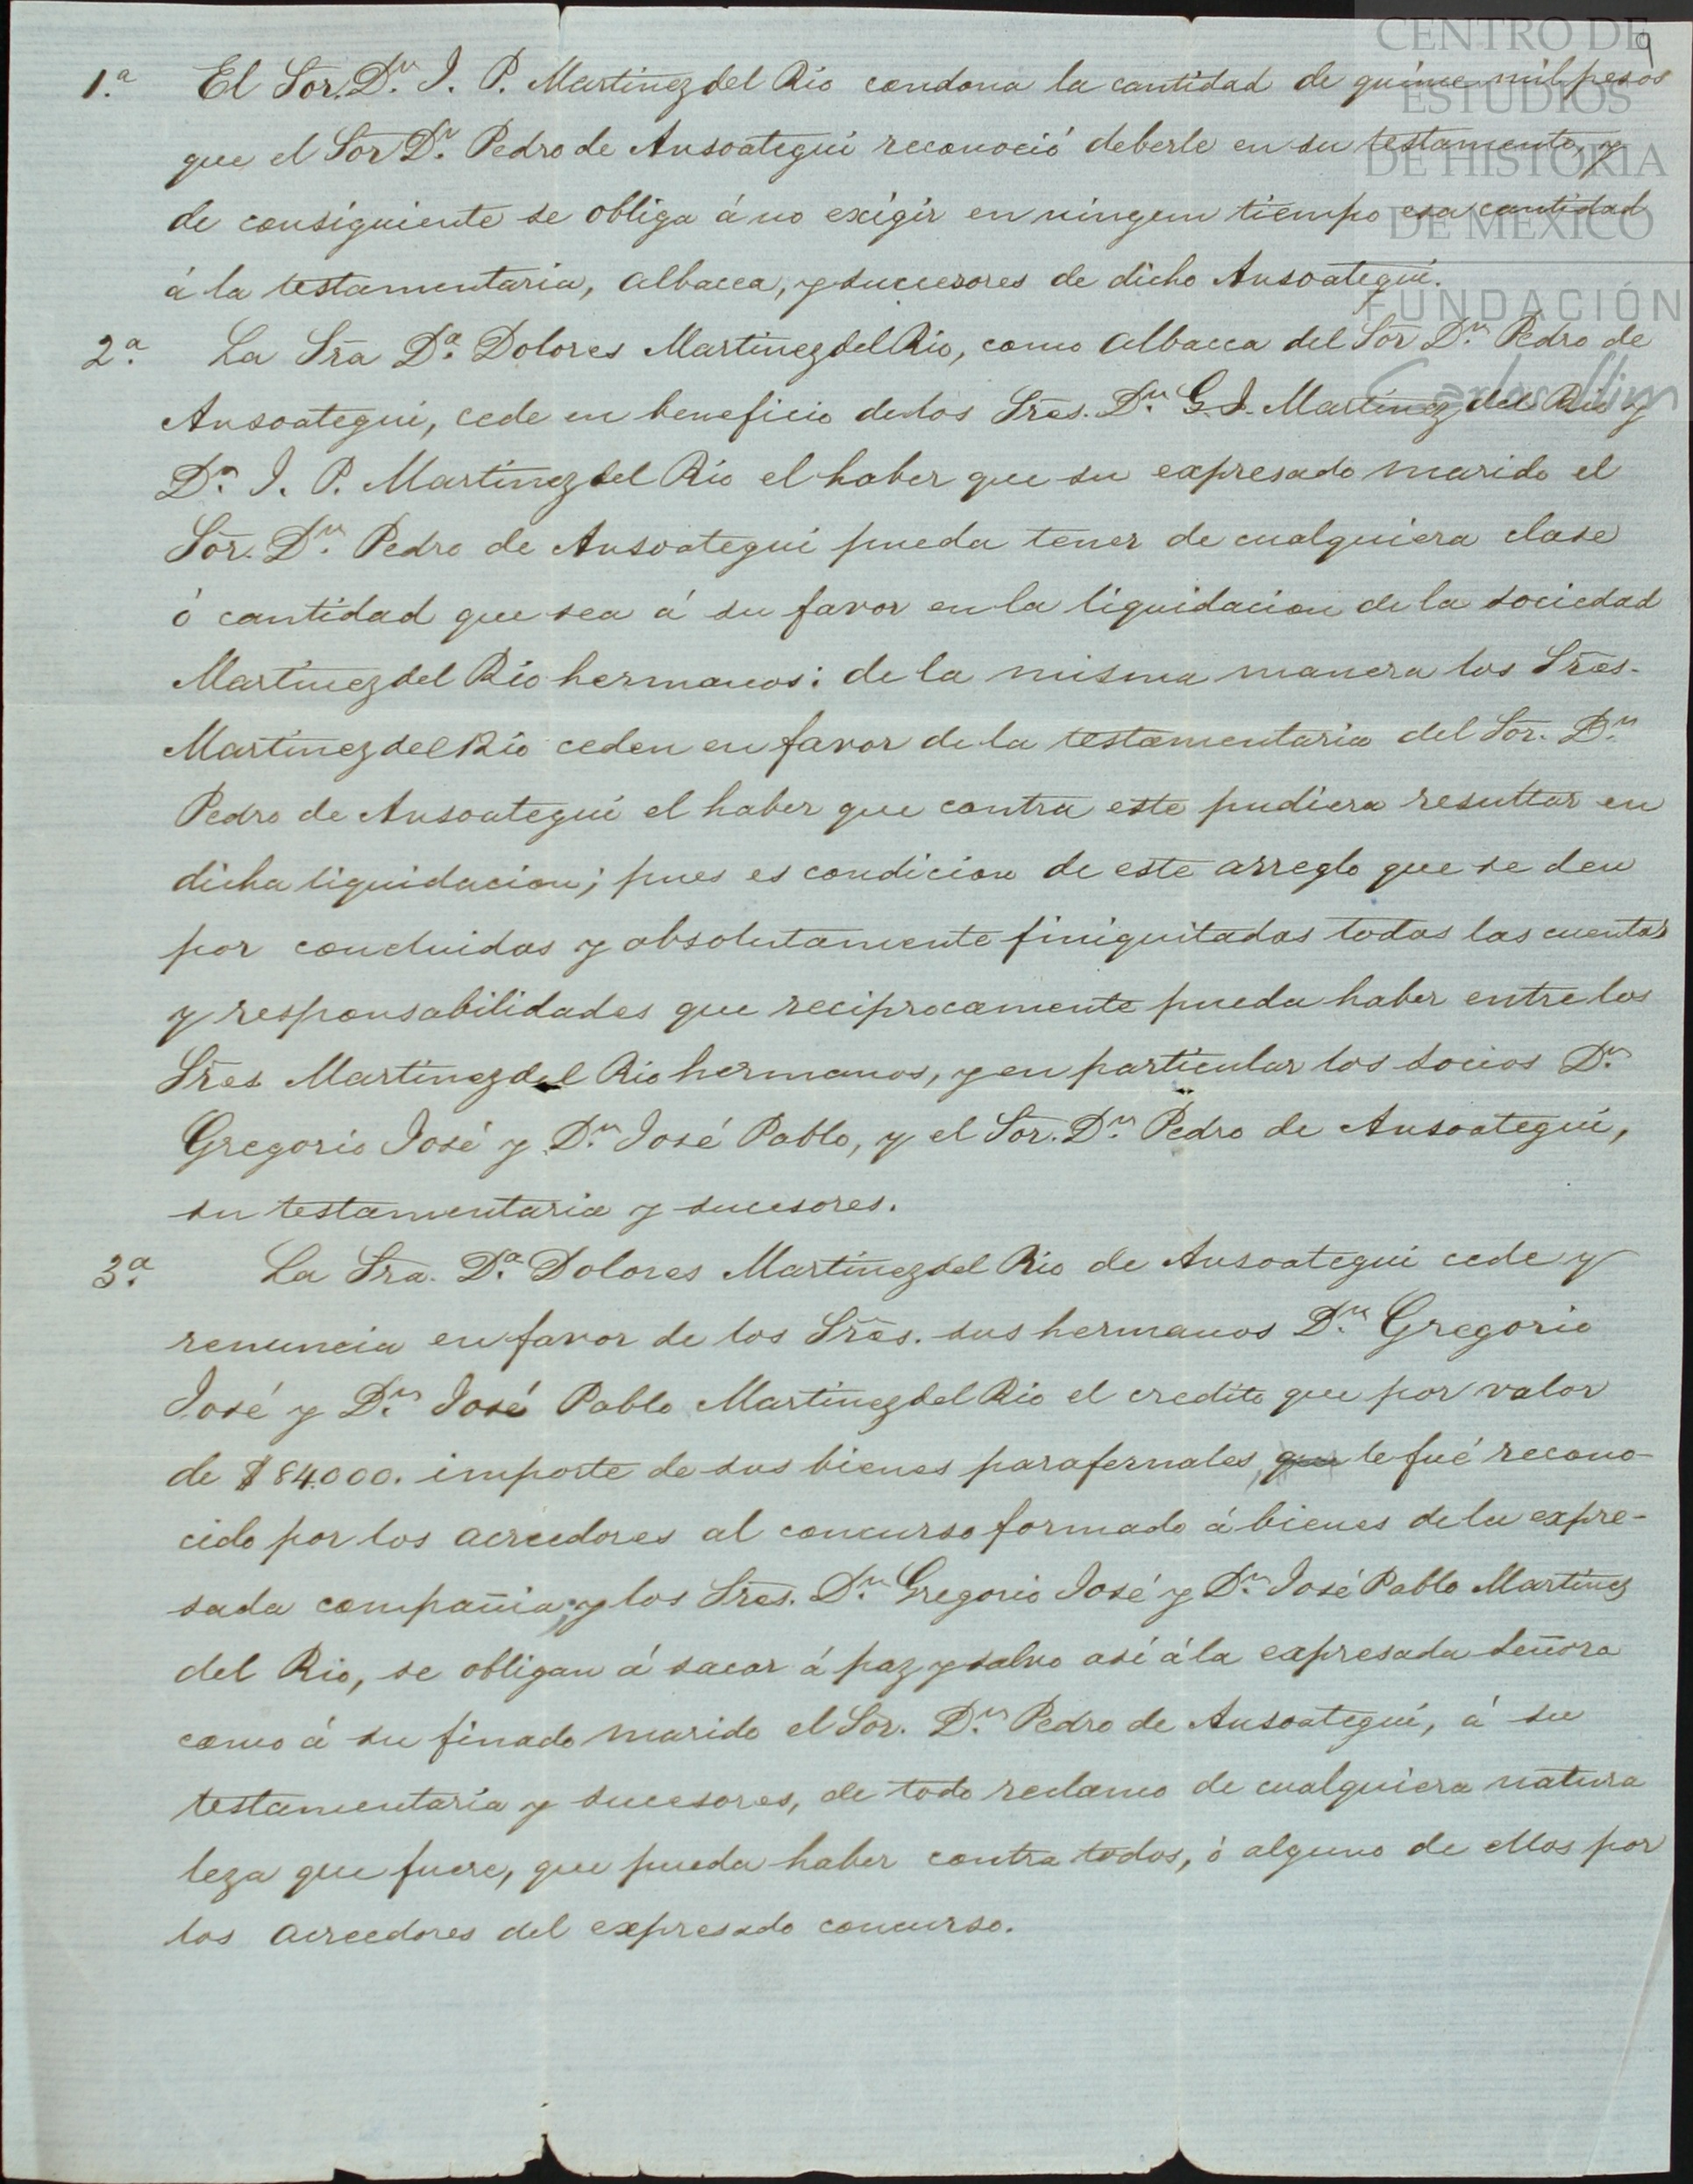 CENTRO DE
ESTUDIOS
DE HISTORIA
DE MÉXICO
FUNDACIÓN
Carlos Slim
9
1.ª El Sor. Dn. J. P. Martinez del Rio condona la cantidad de quince mil pesos
que el Sor Dn. Pedro de Ansoategui reconoció deberle en su testamento, y
de consiguiente se obliga á no exigir en ningun tiempo esa cantidad
á la testamentaria, albacea, y succesores de dicho Ansoategui.
2.ª La Sra Dª. Dolores Martinez del Rio, como albacea del Sor Dn. Pedro de
Ansoategui, cede en beneficio de los Sres. Dn. G. J. Martinez del Rio y
Dn. J. P. Martinez del Rio el haber que su expresado marido el
Sor. Dn. Pedro de Ansoategui pueda tener de cualquiera clase
ó cantidad que sea á su favor en la liquidacion de la sociedad
Martinez del Rio hermanos: de la misma manera los Sres.
Martinez del Rio ceden en favor de la testamentaria del Sor. Dn.
Pedro de Ansoategui el haber que contra este pudiera resultar en
dicha liquidacion; pues es condicion de este arreglo que se den
por concluidas y absolutamente finiquitadas todas las cuentas
y responsabilidades que reciprocamente pueda haber entre los
Sres Martinez del Rio hermanos, y en particular los socios Dn.
Gregorio José y Dn. José Pablo, y el Sor. Dn. Pedro de Ansoategui,
su testamentaria y sucesores.
3.ª La Sra. Dª. Dolores Martinez del Rio de Ansoategui cede y
renuncia en favor de los Sres. sus hermanos Dn. Gregorio
José y Dn. José Pablo Martinez del Rio el credito que por valor
de $84.000. importe de sus bienes parafernales, que le fué recono-
cido por los acreedores al concurso formado á bienes de la expre-
sada compañia; y los Sres. Dn. Gregorio José y Dn. José Pablo Martinez
del Rio, se obligan á sacar á paz y salvo asi á la expresada señora
como á su finado marido el Sor. Dn. Pedro de Ansoategui, á su
testamentaria y sucesores, de todo reclamo de cualquiera natura
leza que fuere, que pueda haber contra todos, ó alguno de ellos por
los acreedores del expresado concurso.